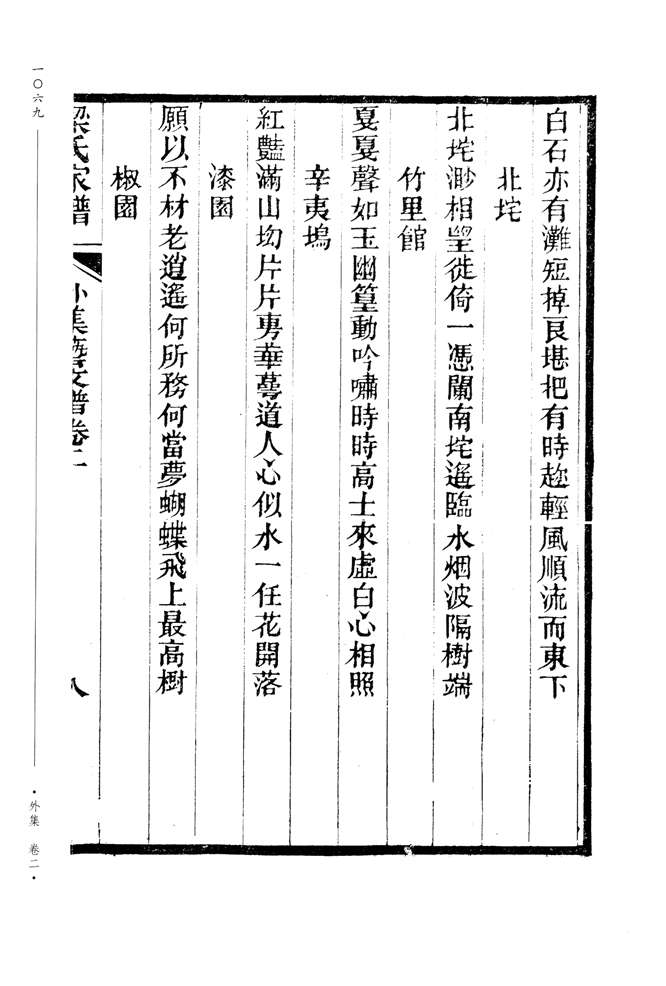 白石亦有灘短掉良堪把有時趂輕風順流而東下
北垞
北垞渺相望徙倚一憑闌南垞遙臨水烟波隔樹端
竹里館
戛戛聲如玉幽篁動吟嘯時時高士來虛白心相照
辛夷塢
紅豔滿山坳片片旉華萼道人心似水一任花開落
漆園
願以不材老逍遙何所務何當夢蝴蝶飛上最高樹
椒園
梁氏家譜
外集藝文譜卷二
八
一〇六九
·外集 卷二·